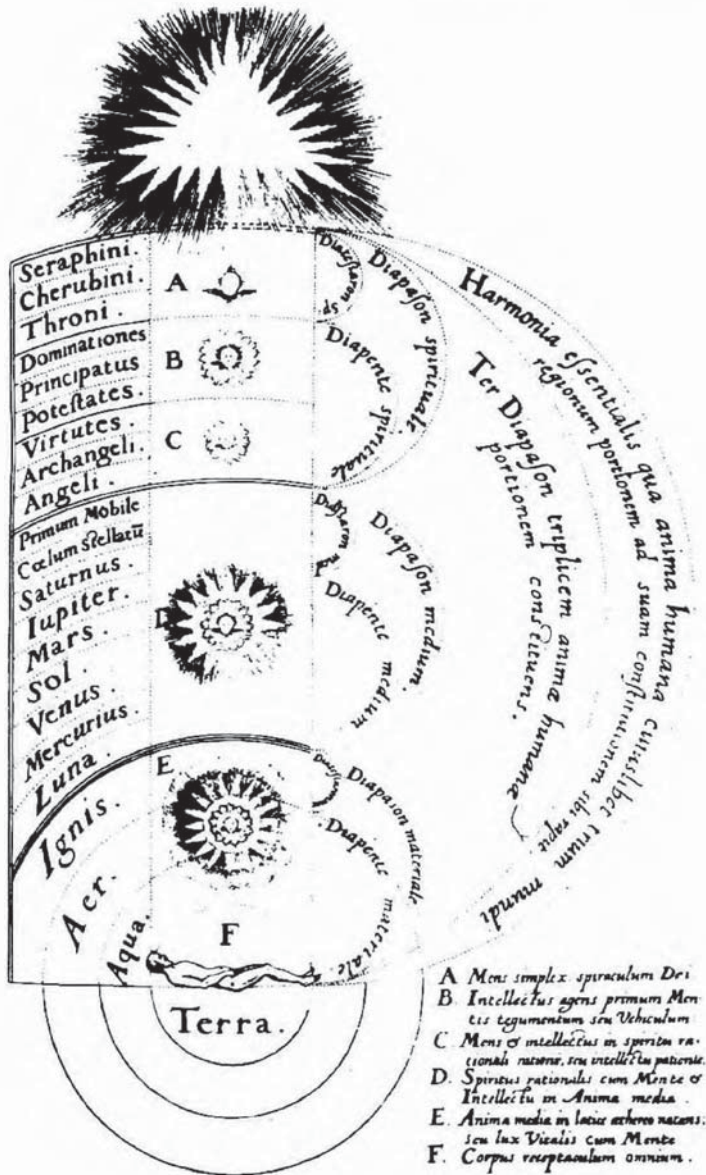 Seraphini.
Cherubini.
Throni.
Dominationes
Principatus
Potestates.
Virtutes.
Archangeli.
Angeli.
Primum Mobile
Cœlum Stellatū
Saturnus.
Iupiter.
Mars.
Sol.
Venus.
Mercurius.
Luna.
Ignis.
Aer.
Aqua.
Terra.
A
B
C
D
E
F
Diatessaron sp
Diapason spirituale.
Diapente spirituale
Diapason medium.
Diapente medium
Diapason materiale
Diapente materiale.
Ter Diapason triplicem animæ humanæ
portionem constituens.
Harmonia essentialis qua anima humana cuiuslibet trium mundi
regionum portionem ad suam constitutionem sibi rapit
A Mens simplex spiraculum Dei
B. Intellectus agens primum Men-
tis tegumentum seu Vehiculum
C. Mens & intellectus in spiritu ra-
tionali ratione, seu intellectu patiente.
D. Spiritus rationalis cum Mente &
Intellectu in Anima media.
E. Anima media in latice æthereo natans;
seu lux Vitalis cum Mente
F. Corpus receptaculum omnium.